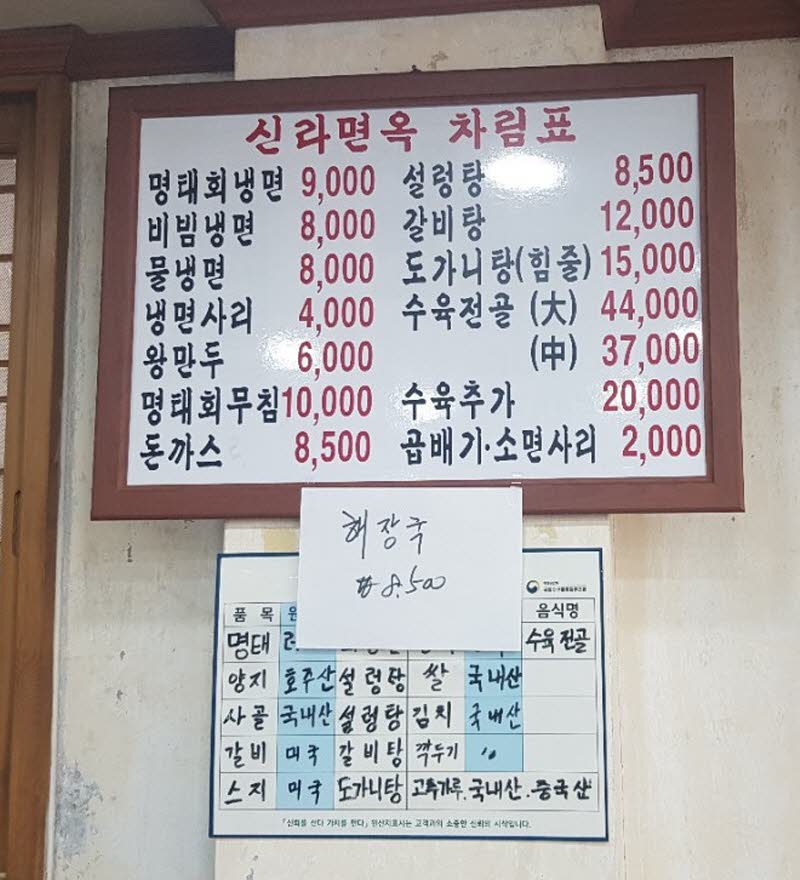 신라면옥 차림표
명태회냉면 9,000
비빔냉면 8,000
물냉면 8,000
냉면사리 4,000
왕만두 6,000
명태회무침 10,000
돈까스 8,500
설렁탕 8,500
갈비탕 12,000
도가니탕(힘줄) 15,000
수육전골 (大) 44,000
(中) 37,000
수육추가 20,000
곱배기·소면사리 2,000
해장국
₩8.500
품 목 음식명
명태 수육전골
양지 호주산 설렁탕 쌀 국내산
사골 국내산 설렁탕 김치 국내산
갈비 미국 갈비탕 깍두기 〃
스지 미국 도가니탕 고추가루. 국내산. 중국산
「신뢰를 산다 가치를 판다」 원산지표시는 고객과의 소중한 신뢰의 시작입니다.